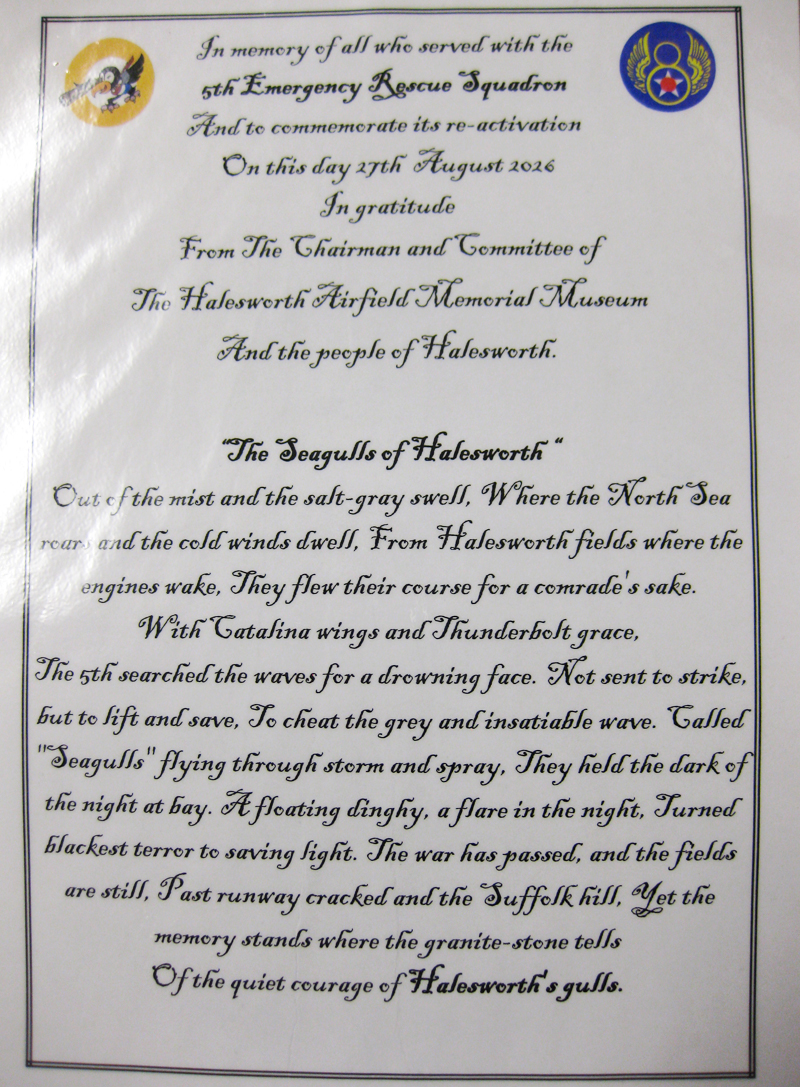 In memory of all who served with the
5th Emergency Rescue Squadron
And to commemorate its re-activation
On this day 27th August 2026
In gratitude
From The Chairman and Committee of
The Halesworth Airfield Memorial Museum
And the people of Halesworth.
"The Seagulls of Halesworth "
Out of the mist and the salt-gray swell, Where the North Sea
roars and the cold winds dwell, From Halesworth fields where the
engines wake, They flew their course for a comrade's sake.
With Catalina wings and Thunderbolt grace,
The 5th searched the waves for a drowning face. Not sent to strike,
but to lift and save, To cheat the grey and insatiable wave. Called
"Seagulls" flying through storm and spray, They held the dark of
the night at bay. A floating dinghy, a flare in the night, Turned
blackest terror to saving light. The war has passed, and the fields
are still, Past runway cracked and the Suffolk hill, Yet the
memory stands where the granite-stone tells
Of the quiet courage of Halesworth's gulls.